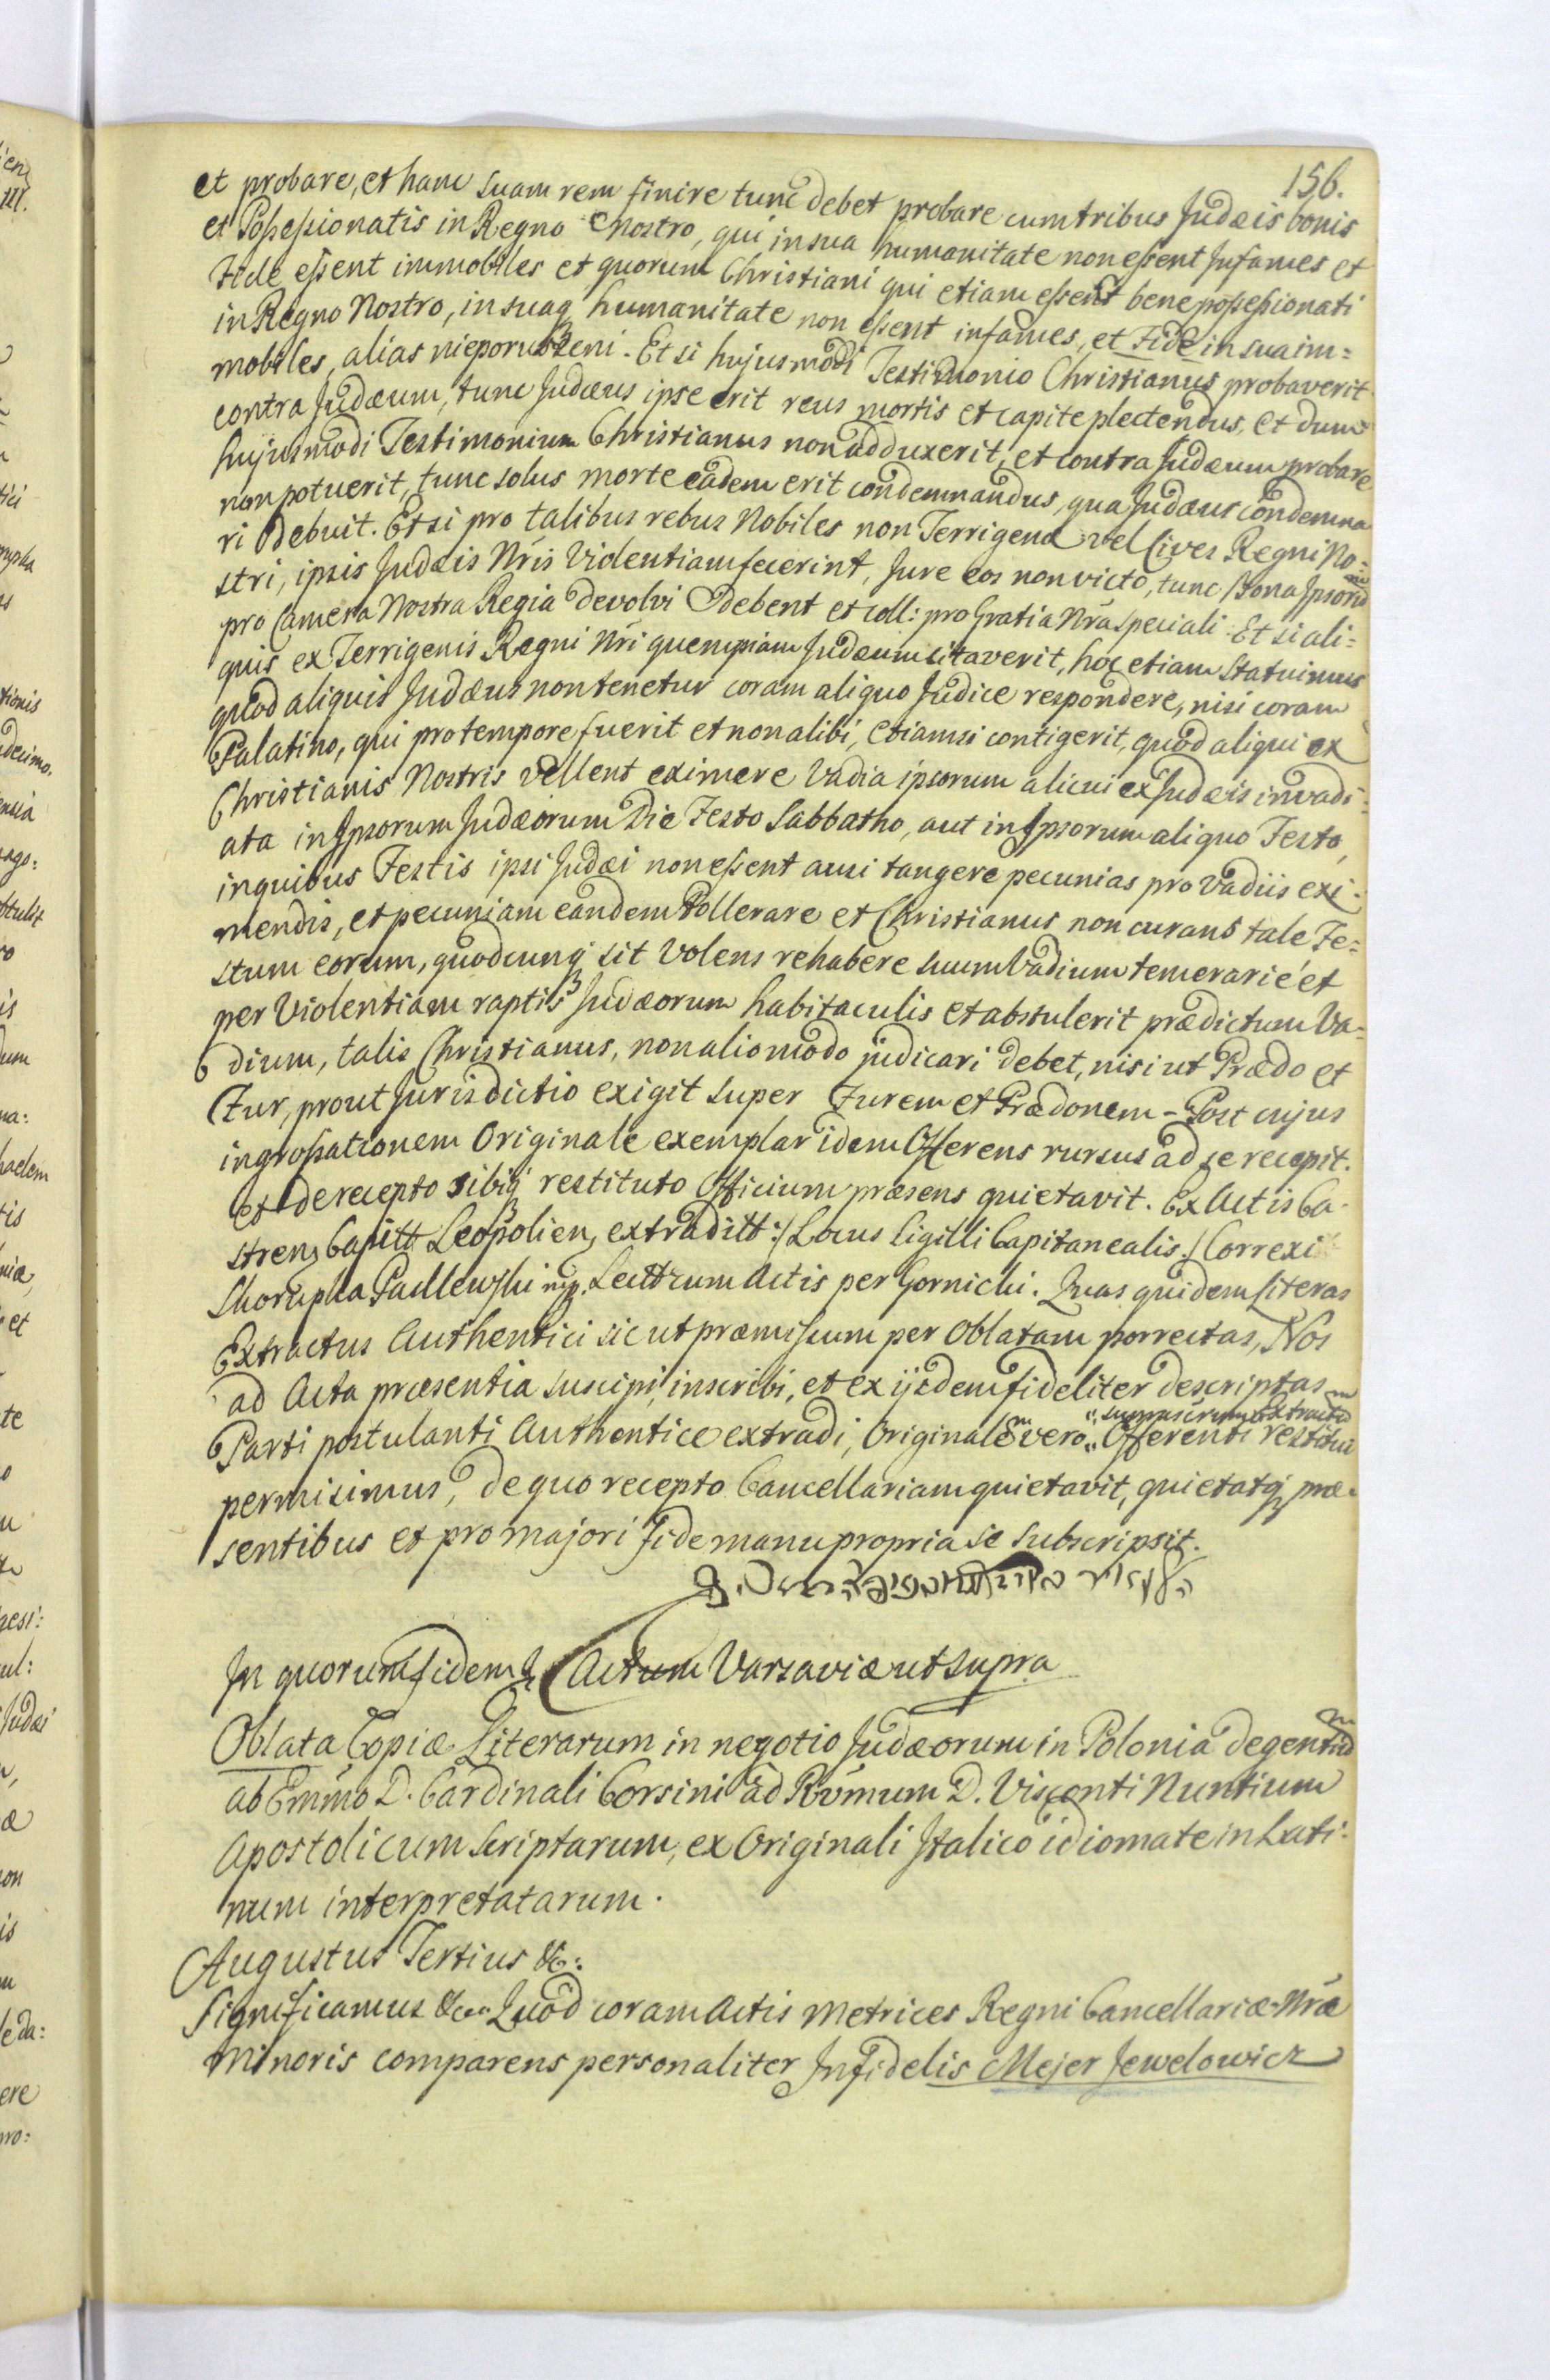 156.
et probare, et hanc suam rem finire tunc debet probare cum tribus Judæis bonis
et Possessionatis in Regno Nostro, qui in sua humanitate non essent Infames et
Fide essent immobiles et quorum Christiani qui etiam essent bene possessionati
in Regno Nostro, in suaq humanitate non essent infames, et Fide in sua im=
mobiles, alias nieporuszeni. Et si hujusmodi Testimonio Christianus probaverit
contra Judæum, tunc Judæus ipse erit reus mortis et capite plectendus, et dum
hujusmodi Testimonium Christianus non adduxerit, et contra Judæum probare
non potuerit, tunc solus morte eadem erit condemnandus, qua Judæus condemna
ri debuit. Et si pro talibus rebus Nobiles non Terrigenæ vel Cives Regni No=
stri, ipsis Judæis Nris Violentiam fecerint, Jure eos non victo, tunc Bona Ipsorum
pro Camera Nostra Regia devolvi debent et coll: pro Gratia Nra speciali. Et si ali=
quis ex Terrigenis Regni Nri quempiam Judæum citaverit, hoc etiam Statuimus
quod aliquis Judæus non tenetur coram aliquo Judice respondere, nisi coram
Palatino, qui pro tempore fuerit et non alibi, etiamsi contigerit, quod aliqui ex
Christianis Nostris vellent eximere Vadia ipsorum alicui ex Judæis invadi=
ata in Ipsorum Judæorum Die Festo Sabbatho, aut in Ipsorum aliquo Festo,
in quibus Festis ipsi Judæi non essent ausi tangere pecunias pro Vadiis exi=
mendis, et pecuniam eandem tollerare et Christianus non curans tale Fe=
stum eorum, quodcunq sit volens rehabere suum Vadium temerarie et
per Violentiam raptis Judæorum habitaculis et abstulerit prædictum Va=
dium, talis Christianus, non alio modo judicari debet, nisi ut Prædo et
Fur, prout Jurisdictio exigit super Furem et Prædonem - Post cujus
ingrossationem Originale exemplar idem Offerens rursus ad se recepit.
et de recepto sibiq restituto Officium præsens quietavit. Ex Actis Ca=
stren Capitt Leopolien, extraditt: /Locus Sigilli Capitanealis./ Correxi
Skorupka Padlewski mp. Lectrum Actis per Gornicki. Quas quidem Literas
Extractus Authentici sicut præmissum per Oblatam porrectas, Nos
ad Acta præsentia suscipi, inscribi, et ex ijsdem fideliter descriptas
Parti postulanti Authentice extradi, Originale vero "suprascriptum Extractum" Offerenti restitui
permisimus, de quo recepto Cancellariam quietavit, quietatq præ=
sentibus et pro majori Fide manu propria se subscripsit.
In quorum fidem &c Actum Varsaviæ ut supra
Oblata Copiæ Literarum in negotio Judæorum in Polonia degentium
ab Emmo D. Cardinali Corsini ad Rvmum D. Visconti Nuntium
Apostolicum scriptarum, ex Originali Italico idiomate in Lati=
num interpretatarum.
Augustus Tertius &c:
Significamus &c. Quod coram Actis Metrices Regni Cancellariæ Nræ
Minoris comparens personaliter Infidelis Mejer Jewelowicz